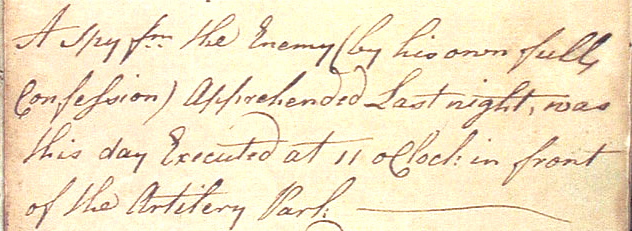 A spy fm the Enemy (by his own full
Confession) Apprehended Last night, was
this day Executed at 11 oClock in front
of the Artilery Park